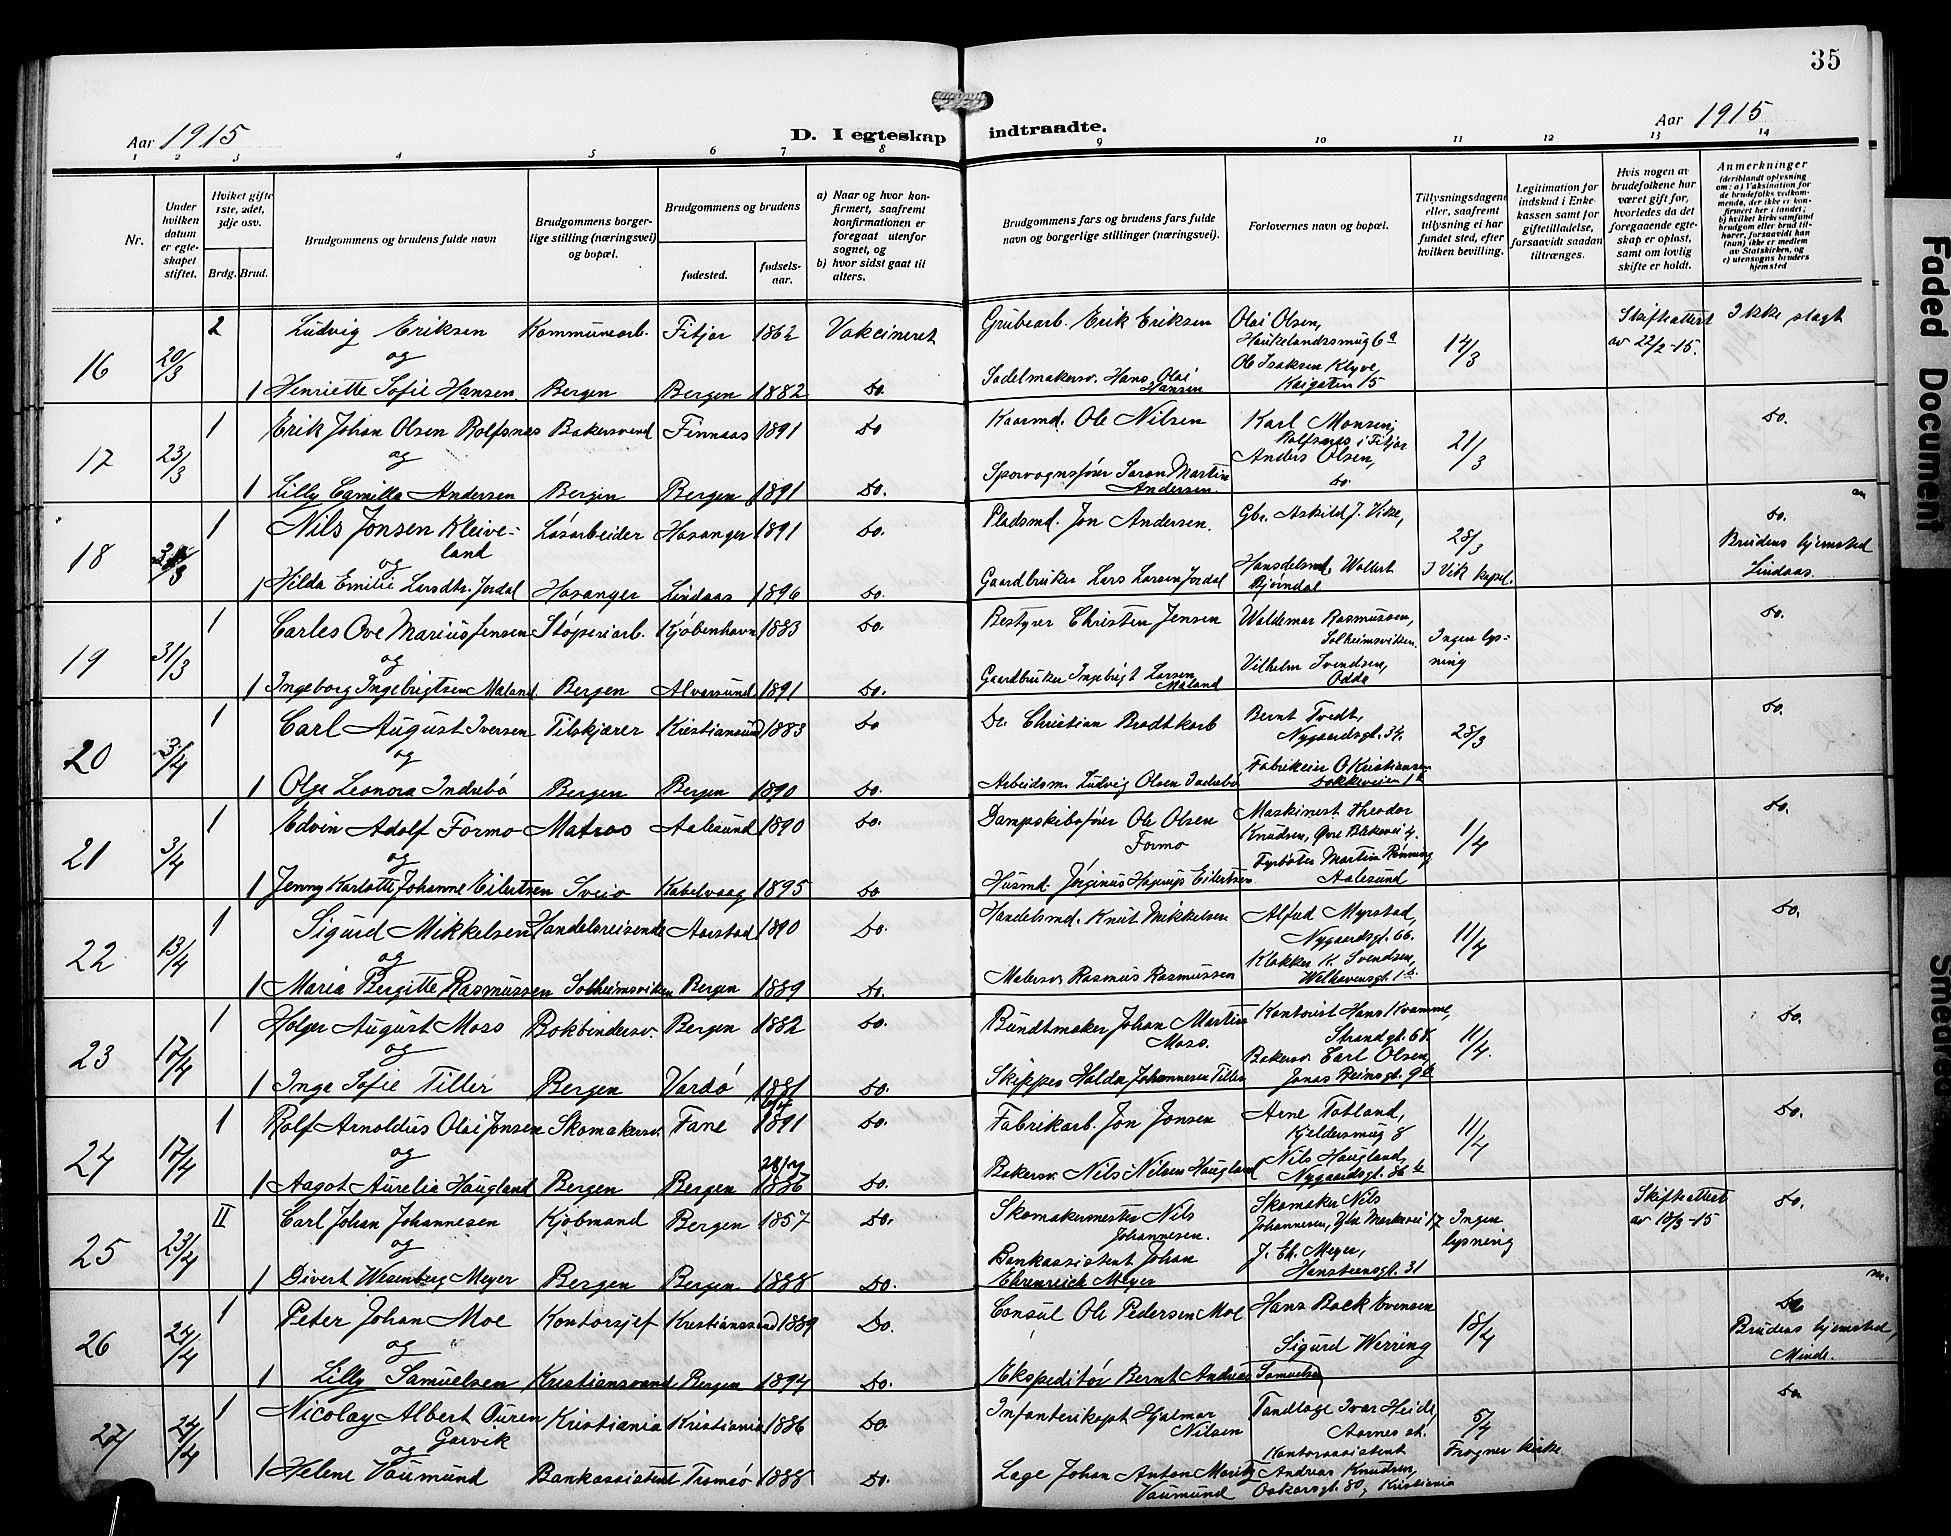 35
Aar 1915
D. I egteskap indtraadte.
Aar 1915
1 2 3 4 5 6 7 8 9 10 11 12 13 14
Nr.
Under hvilken datum er egteskapet stiftet.
Hvilket gifte 1ste, 2det, 3dje osv.
Brdg. Brud.
Brudgommens og brudens fulde navn
Brudgommens borgerlige stilling (næringsvei) og bopæl.
Brudgommens og brudens
fødested.
fødselsaar.
a) Naar og hvor konfirmert, saafremt konfirmationen er foregaat utenfor sognet, og
b) hvor sidst gaat til alters.
Brudgommens fars og brudens fars fulde navn og borgerlige stillinger (næringsvei).
Forlovernes navn og bopæl.
Tillysningsdagene eller, saafremt tillysning ei har fundet sted, efter hvilken bevilling.
Legitimation for indskud i Enkekassen samt for giftetilladelse, forsaavidt saadan tiltrænges.
Hvis nogen av brudefolkene har været gift før, hvorledes da det foregaaende egteskap er opløst, samt om lovlig skifte er holdt.
Anmerkninger (deriblandt oplysning om: a) Vaksination for de brudefolks vedkommende, der ikke er konfirmert her i landet; b) hvilket kirkesamfund brudgom eller brud tilhører, forsaavidt han (hun) ikke er medlem av Statskirken, og c) utensogns bruders hjemsted
16 20/3 2 Ludvig Eriksen Kommunearb. Fitjar 1862 Vakcineret Grubearb. Erik Eriksen Olai Olsen, Haukelandssmug 6a 14/3 Skifteattest av 22/2-15. Ikke slegt
og
1 Henriette Sofie Hansen Bergen Bergen 1882 Do. Sadelmakersv. Hans Olai Hansen Ole Isaksen Klyve, Kaigaten 15
17 23/3 1 Erik Johan Olsen Rolfsnes Bakersvend Finnaas 1891 Do Kaarmd. Ole Nilsen Karl Monsen, Rolfsnes i Fitjar 21/3 Do.
og
1 Lilly Camilla Andersen Bergen Bergen 1891 Do. Sporvognsfører Søren Martin Andersen. Anders Olsen, Do.
18 1 Nils Jonsen Kleiveland Løsarbeider Hosanger 1891 Do. Pladsmd. Jon Andersen. Gbr. Askild J. Vike, 28/3 I Vik kapel. Do. Brudens hjemsted Lindaas.
og
1 Hilda Emilie Larsdtr. Jordal Hosanger Lindaas 1896 Do. Gaardbruker Lars Larsen Jordal Handelsmd. Wollert Bjørndal
19 31/3 1 Carles Ove Marius Jensen Støperiarb. Kjøbenhavn 1883 Do. Bestyrer Christen Jensen Waldemar Rasmussen, Solheimsviken. Ingen lysning Do.
og
1 Ingeborg Ingebrigtsen Maland Bergen Alversund 1891 Do. Gaardbruker Ingebrigt Larsen Maland Vilhelm Svendsen, Odda
20 3/4 1 Carl August Iversen Tilskjærer Kristiansund 1883 Do Dr. Christian Brodtkorb Bernt Tvedt, Nygaardsgt. 34. 28/3 Do.
og
1 Olga Leonora Indrebø Bergen Bergen 1890 Do. Arbeidsm. Ludvig Olsen Indrebø Fabrikeier O. Kristiansen Dokkeveien 1b
21 3/4 1 Edvin Adolf Formo Matros Aalesund 1890 Do. Dampskibsfører Ole Olsen Formo Maskinest Theodor Knudsen, Øvre Blekevei 4. 1/4 Do.
og
1 Jenny Karlotte Johanne Eilertsen Sveio Kabelvaag 1895 Do Husmd. Jørginus Hagrup Eilertsen Fyrbøter Martin Rønning Aalesund
22 13/4 1 Sigurd Mikkelsen Handelsreisende Aarstad 1890 Do. Handelsmd. Knut Mikkelsen Alfred Myrstad, Nygaardsgt. 66. 11/4 Do.
og
1 Maria Bergitte Rasmussen Solheimsviken Bergen 1889 Do. Malersv. Rasmus Rasmussen Klokker K. Svendsen, Welhavensgt. 1b.
23 17/4 1 Holger August Moss Bokbindersv. Bergen 1882 Do. Bundtmaker Johan Martin Moss. Kontorist Hans Kvamme, Strandgt. 68. 11/4. Do.
og
1 Inga Sofie Tiller Bergen Vardø 1881 Do. Skipper Haldn Johannesen Tiller Bakersv. Carl Olsen, Jonas Reinsgt. 9b
24 17/4 1 Rolf Arnoldus Olai Jonsen Skomakersv. Fane 1891 Do. Fabrikarb. Jon Jonsen Arne Totland, Kjeldersmug 8 11/4 Do.
og
1 Aagot Aurelia Haugland Bergen Bergen 1886 Do. Bakersv. Nils Nilsen Haugland Nils Haugland, Nygaardsgt. 86b
25 23/4 II Carl Johan Johannesen Kjøbmand Bergen 1857 Do. Skomakermester Nils Johannesen. Skomaker Nils Johannesen, Ytr. Markevei 17 Ingen lysning Skifteattest av 18/3-15 Do.
og
1 Divert Wesenberg Meyer Bergen Bergen 1888 Do. Bankassistent Johan Ehrenreich Meyer J. Chr. Meyer, Hansteensgt. 31
26 24/4 1 Peter Johan Moe Kontorsjef Kristianssand 1889 Do. Consul Ole Pedersen Moe Hans Bock Evensen 18/4 Do Brudens hjemsted, Minde.
og
1 Lilly Samuelsen Kristianssand Bergen 1894 Do. Ekspeditør Bernt Andreas Samuelsen Sigurd Werring
27 24/4 1 Nicolay Albert Ouren Gørvik Kristiania Kristiania 1886 Do Infanterikapt. Hjalmar Nilsen Tandlæge Ivar Heide, Aarnes st. 5/4 Frogner kirke Do
og
1 Helene Vaumund Bankassistent Tromsø 1888 Do. Læge Johan Anton Moritz Vaumund Kontorassistent Andreas Knudsen, Oskarsgt. 80, Kristiania
Faded Document
Smeared